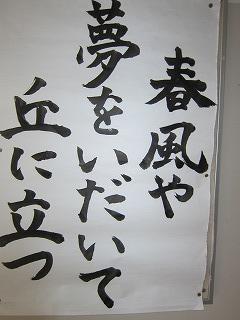 春風や
夢をいだいて
丘に立つ